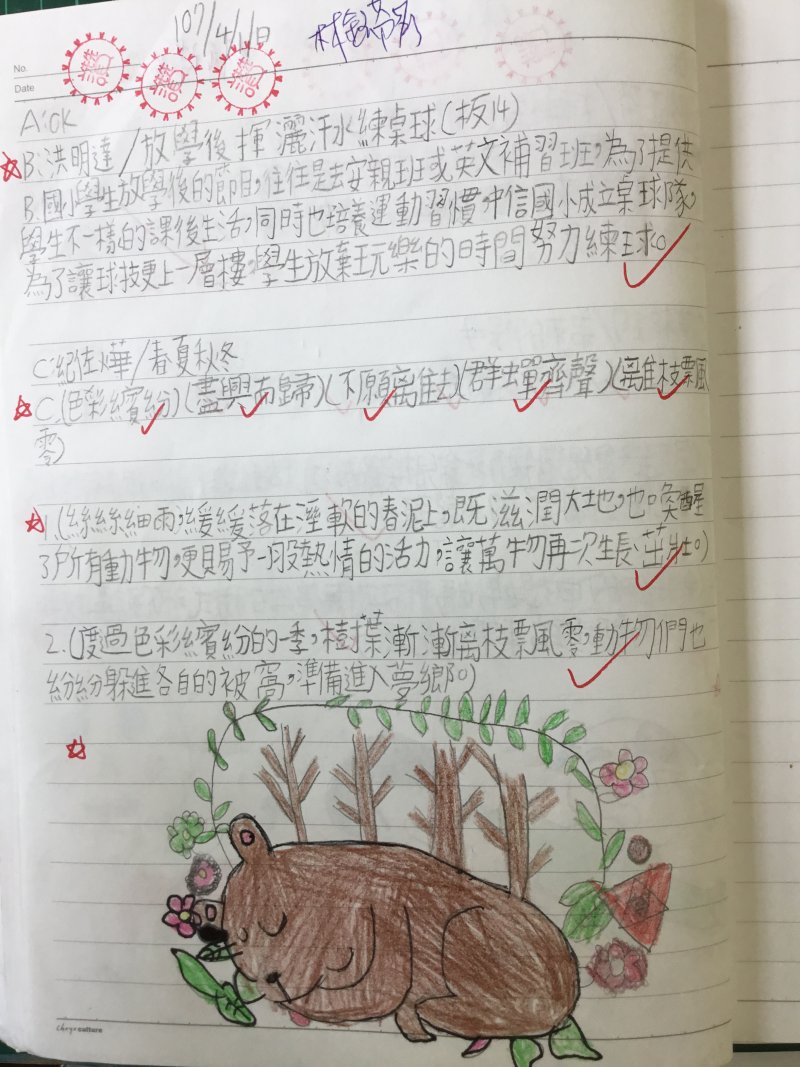 107/4/11日
No.
Date
讚 讚 讚
A:OK
B:洪明達/放學後 揮灑汗水練桌球(板14)
B.國小學生放學後的節目,往往是去安親班或英文補習班,為了提供
學生不一樣的課後生活,同時也培養運動習慣,中信國小成立桌球隊,
為了讓球技更上一層樓,學生放棄玩樂的時間努力練球。
C:絕佳燁/春夏秋冬
C.(色彩繽紛)(盡興而歸)(不願離去)(群蟬齊聲)(離枝飄風
零)
1.(絲絲細雨,緩緩落在溼軟的春泥上,既滋潤大地,也喚醒
了所有動物,更賜予一股熱情的活力,讓萬物再一次生長茁壯。)
2.(度過色彩繽紛的一季,樹葉漸漸离枝票風零,動物們也
紛紛躲進各自的被窩,準備進入夢鄉。)
culture